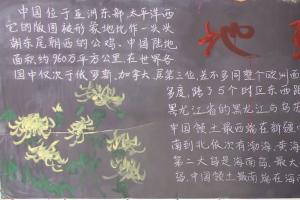 中国位于亚洲东部太平洋西
它的版图被形象地比作一头头
朝东尾朝西的公鸡。中国陆地
面积约960万平方公里,在世界各
国中仅次于俄罗斯、加拿大,居第三位,差不多同整个欧洲面
多度,跨55个时区东西距
黑龙江省的黑龙江与乌苏
中国领土最西端在新疆
南到北依次有渤海,黄海
第二大岛是海南岛,最大
岛,中国领土最南端在海南
地